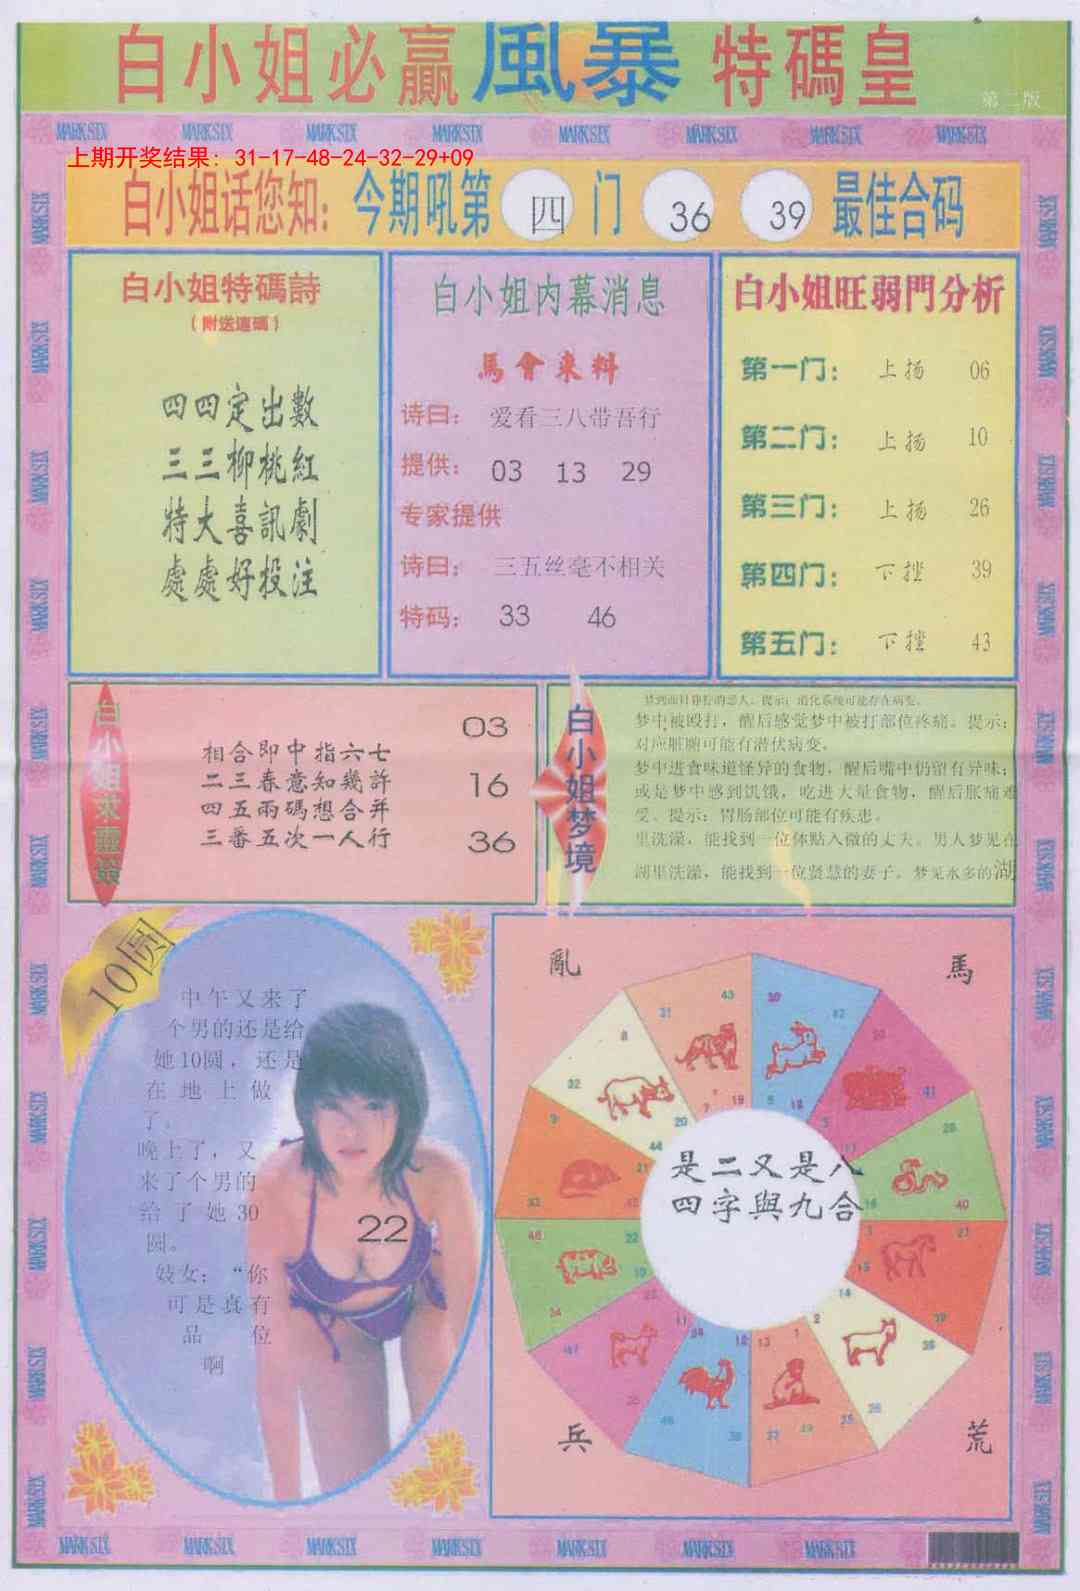 白小姐必赢風暴特碼皇
第二版
MARKSIX MARKSIX MARKSIX MARKSIX MARKSIX MARKSIX MARKSIX MARKSIX
上期开奖结果: 31-17-48-24-32-29+09
白小姐话您知: 今期吼第 四 门 36 39 最佳合码
白小姐特碼詩
(附送連碼)
四四定出數
三三柳桃紅
特大喜訊劇
處處好投注
白小姐内幕消息
馬會來料
诗曰: 爱看三八带吾行
提供: 03 13 29
专家提供
诗曰: 三五丝毫不相关
特码: 33 46
白小姐旺弱門分析
第一门: 上扬 06
第二门: 上扬 10
第三门: 上扬 26
第四门: 下挫 39
第五门: 下挫 43
白小姐求靈簽
相合即中指六七
二三春意知幾許
四五兩碼想合并
三番五次一人行
03
16
36
白小姐梦境
提示: 消化系统可能存在病变。
梦中被殴打，醒后感觉梦中被打部位疼痛。提示:
对应脏腑可能有潜伏病变。
梦中进食味道怪异的食物，醒后嘴中仍留有异味;
或是梦中感到饥饿，吃进大量食物，醒后胀痛难
受。提示: 胃肠部位可能有疾患。
里洗澡，能找到一位体贴入微的丈夫。男人梦见在
湖里洗澡，能找到一位贤慧的妻子。梦见水多的湖
10圆
中午又来了
个男的还是给
她10圆，还是
在地上做
了。
晚上了，又
来了个男的
给了她30
圆。
妓女: “你
可是真有
品位
啊
22
亂
馬
是二又是八
四字與九合
兵
荒
MARKSIX MARKSIX MARKSIX MARKSIX MARKSIX MARKSIX MARKSIX